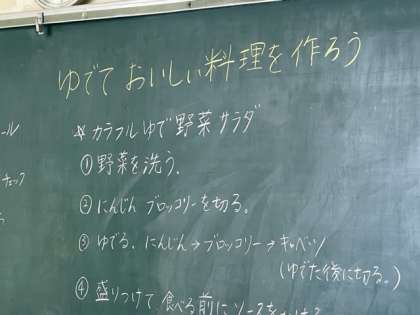 ゆでて おいしい料理を作ろう
☆カラフルゆで野菜サラダ
①野菜を洗う.
②にんじん ブロッコリーを切る。
③ゆでる. にんじん→ブロッコリー→キャベツ
(ゆでた後に切る。)
④盛りつけて 食べる前にソースをかける
ール
チェック